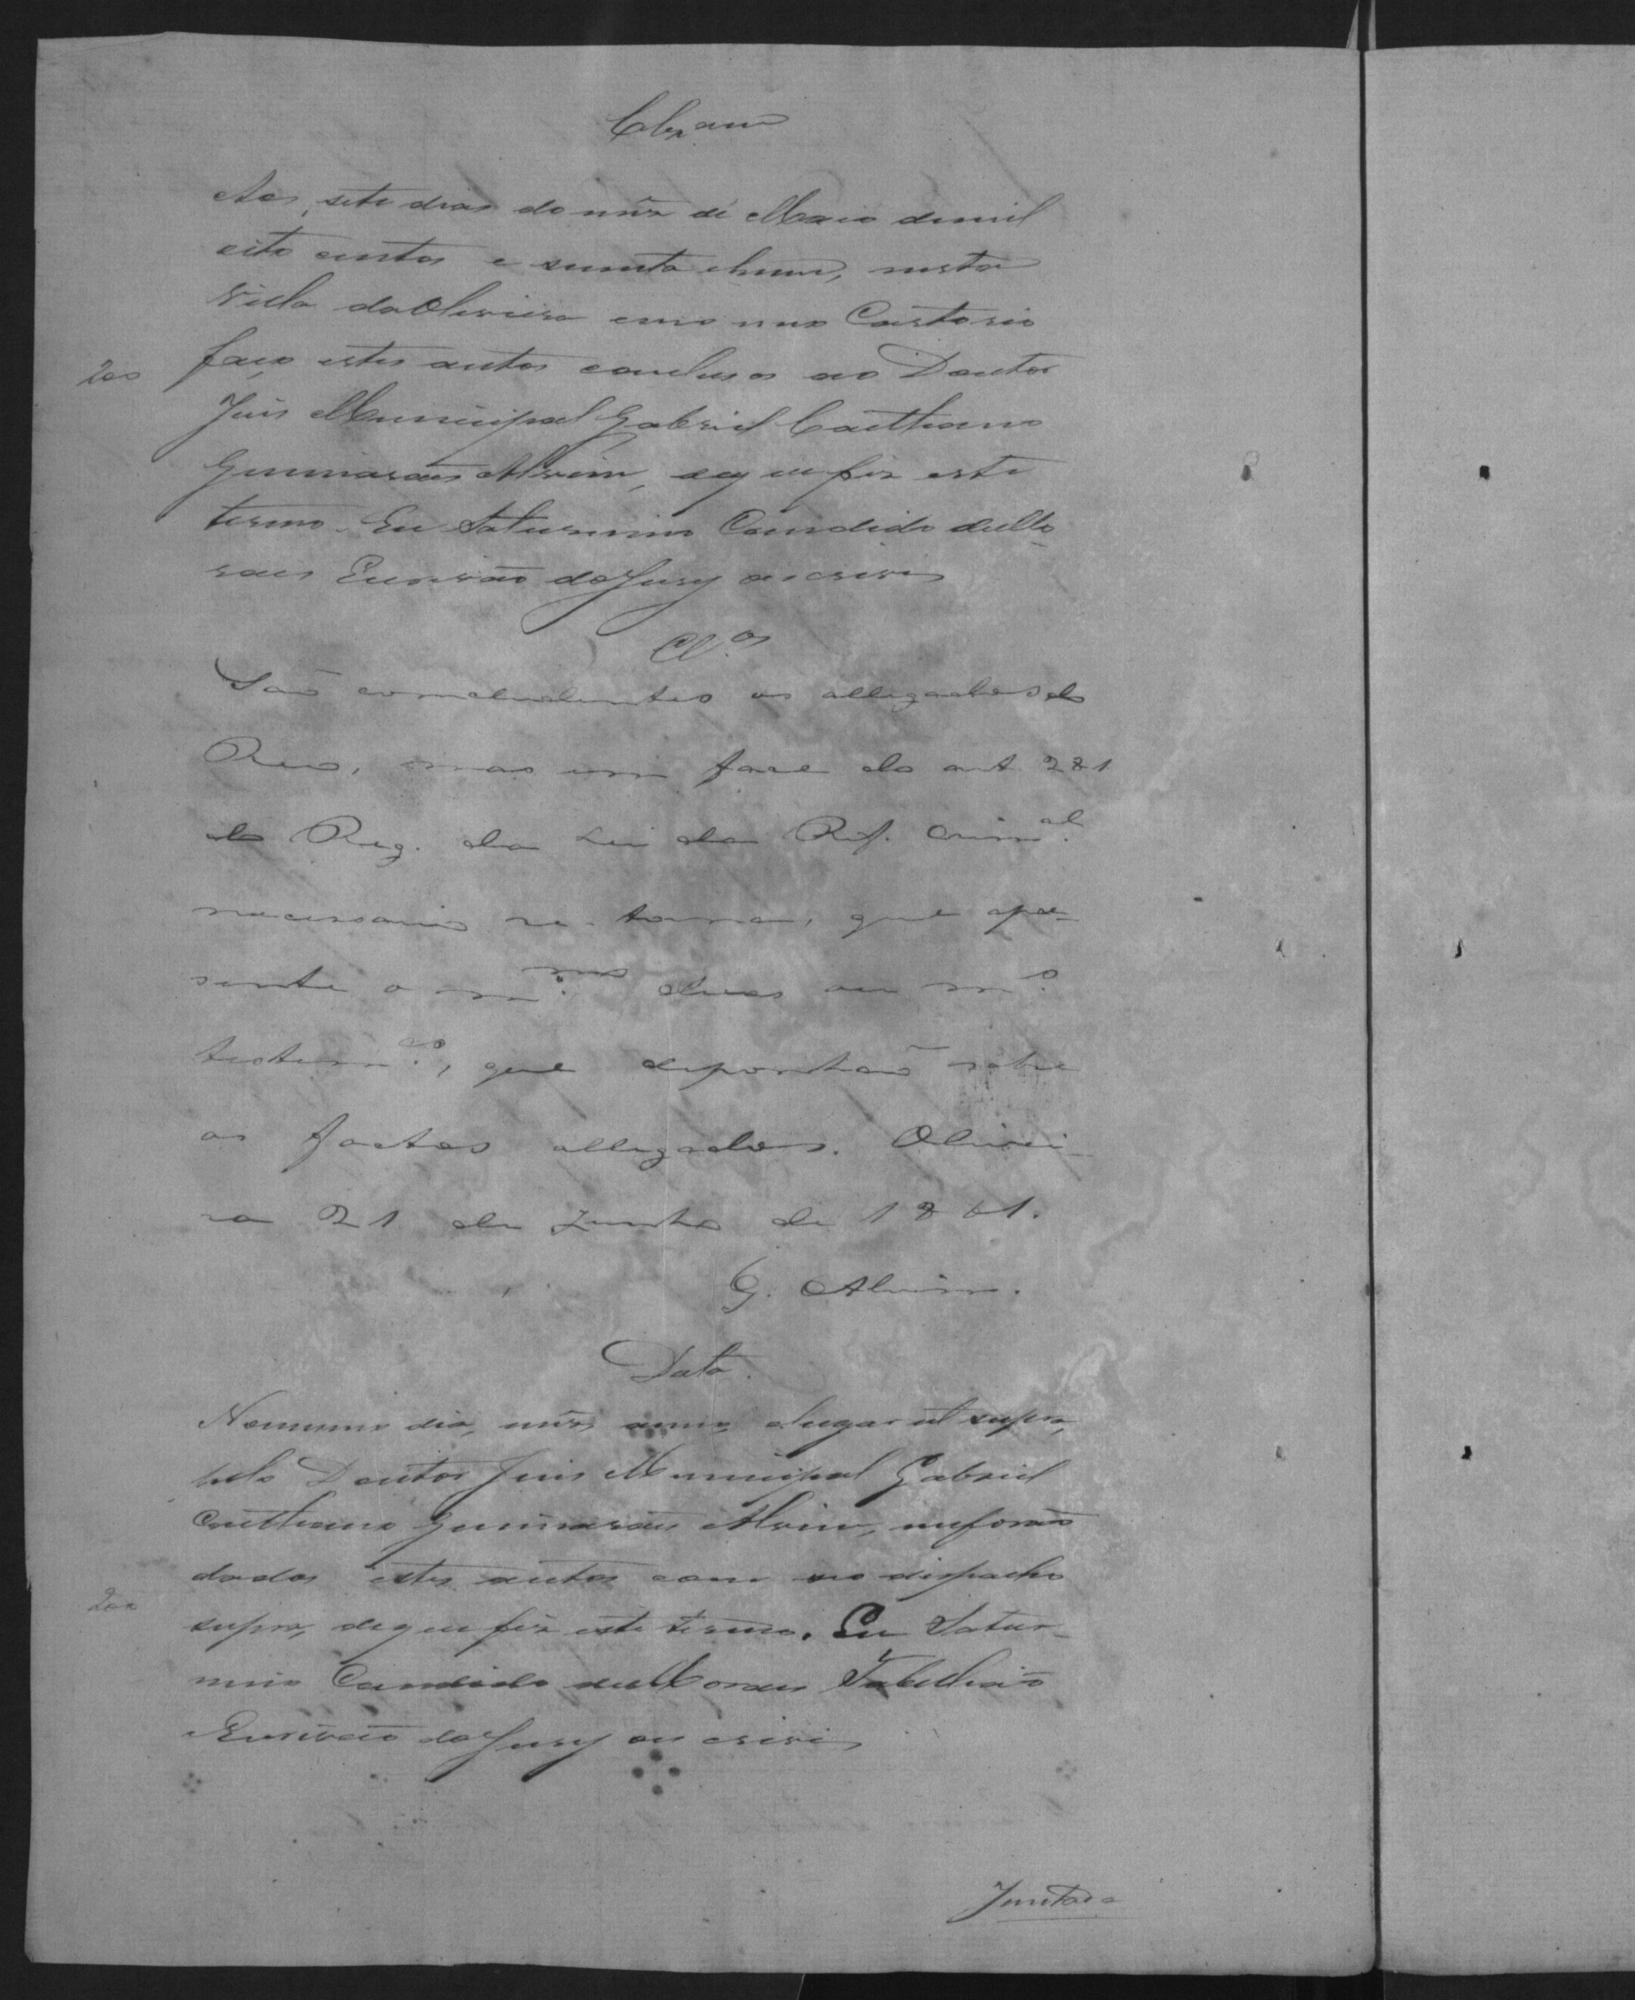 Clzam
Aos sete dias do mez de Maio de mil
oito centos e secenta ehum, nesta
Villa da Oliveira em o meo Cartorio
200 faço estes autos conclusos ao Doutor
Juis Municipal Gabriel Caethano
Guimaraes Alvim, deque fiz este
termo. Eu Saturnino Candido de Mo-
raes Escrivão do Jury o escrivi
Cl.os
São concludentes os allegados do
Reo, mas em face do art 281
do Reg. da Lei da Ref. Crim.al
necessario se torna, que apre-
sente o m.mo duas ou m.s
testem.as, que deponhão sobre
os factos allegados. Olivei-
ra 21 de Junho de 1861.
G. Alvim.
Data.
No mesmo dia, mez, anno, elugar ut supra,
pelo Doutor Juis Municipal Gabriel
Caethano Guimaraes Alvim, me forão
dados estes autos com o despacho
200 supra, deque fiz este termo. Eu Satur-
nino Candido de Moraes Tabellião
Escrivão do Jury o escrivi
Juntada